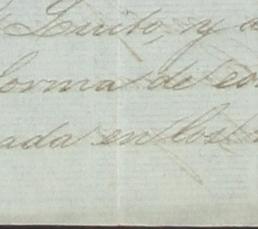 Quito, y
forma de
ada en los